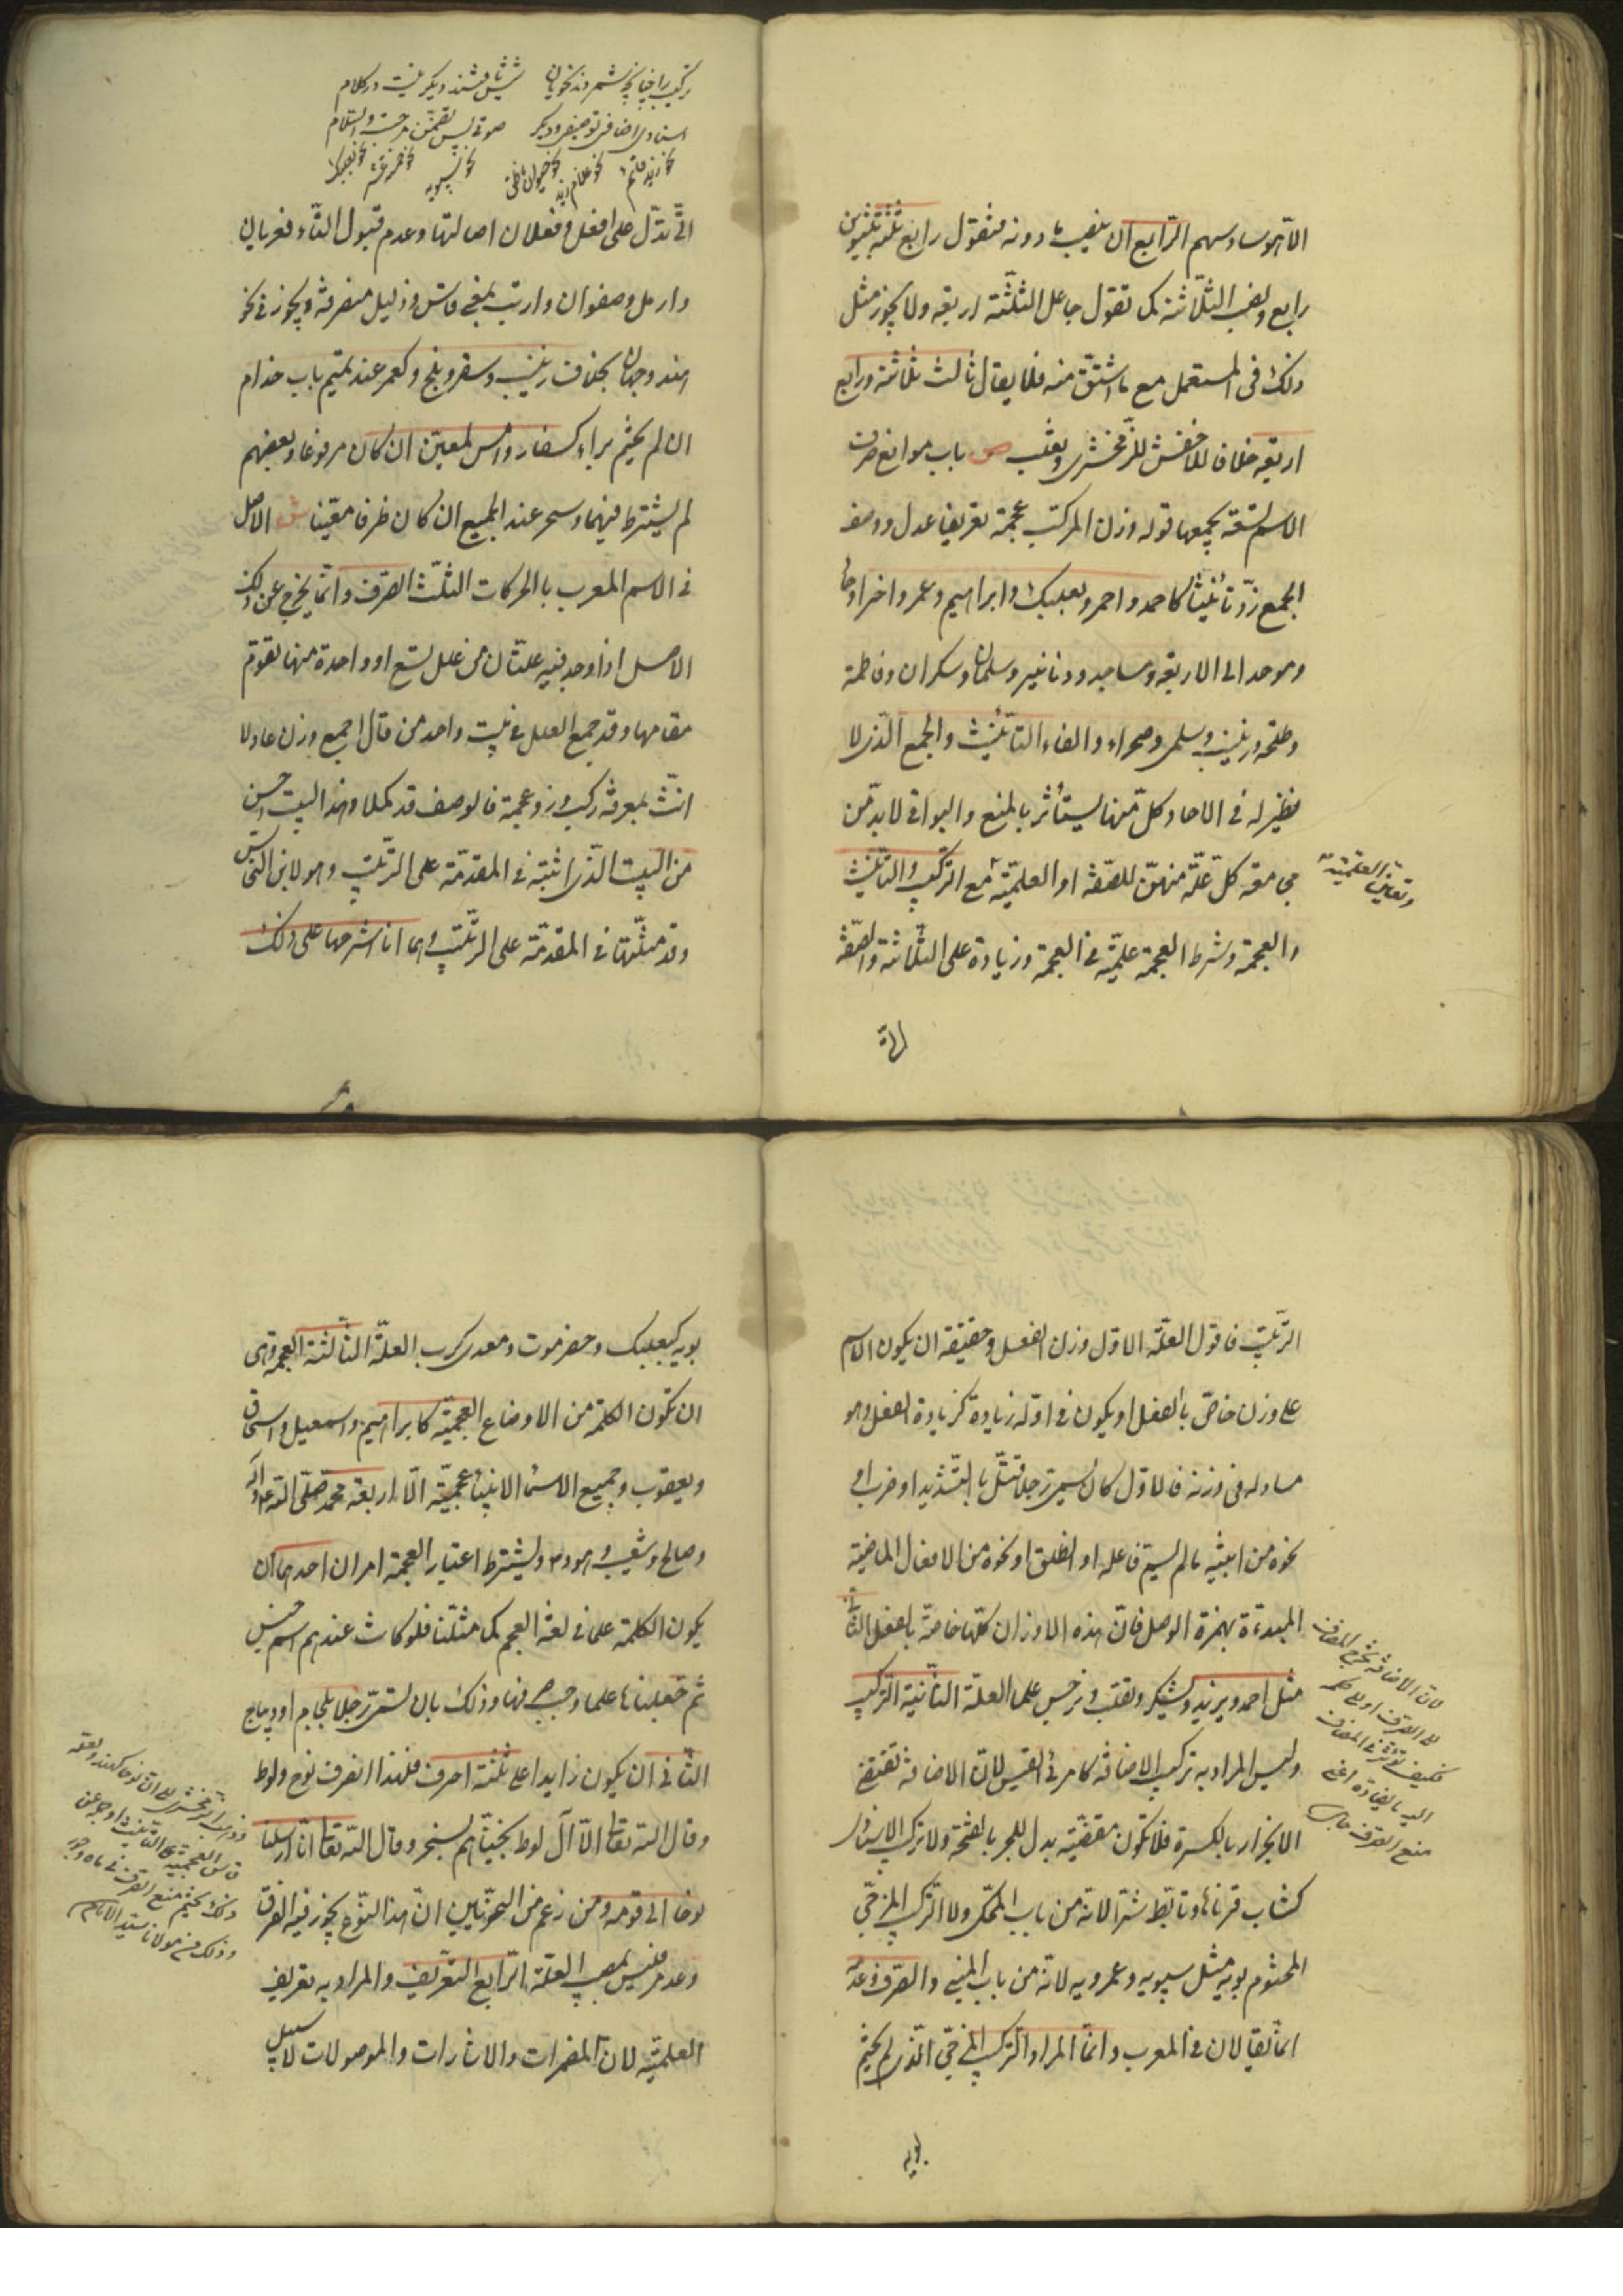 الا هو سادسهم الرّابع ان ينصب ما دونه فتقول رابع ثلثة بتنوين
رابع ونصب الثلاثة كما تقول جاعل الثلثة اربعة ولا يجوز مثل
ذلك فى المستعمل مع ما اشتقّ منه فلا يقال ثالث ثلاثة ورابع
اربعة خلافا للاخفش للزّمخشرى وثعلب ص باب موانع صرف
الاسم تسعة يجمعها قوله وزن المركب عجمة تعريفها عدل ووصف
الجمع زد تأنيثا كاحمد واحمر وبعلبك وابراهيم وعمر واخر واحاد
وموحد الى الاربعة ومساجد ودنانير وسلمان وسكران وفاطمة
وطلحة وزينب وسلمى وصحراء والف التأنيث والجمع الّذى لا
نظير له فى الاحاد وكلّ منهما يستأثر بالمنع والبواقى لا بدّ من
مجىء معه كلّ علّة منهنّ للصّفة او العلميّة مع التركيب والتانيث
وتعاين العلميّة
والعجمة وشرط العجمة علميّة فى العجمة وزيادة على الثلاثة والصّفة
تركيب را چنانچه شمرند نحويان شش باشند ديگر نيست در كلام
اسنادى اضافى توصيفى وديگر صوتى پس تضمّن مزجيست والسّلام
نحو زيد قائم نحو غلام زيد نحو حيوان ناطق نحو سيبويه نحو خمسة عشر نحو بعلبك
على افعل وفعلان اصالتها وعدم قبول التّاء فعريان
وارمل وصفوان وارنب بمعنى قاس وذليل منصرفة ويجوز فى نحو
هند وجهان بخلاف زينب وسقر وبلخ وكعمر عند تميم باب حذام
ان لم يختم براء كسفار وامس لمعيّن ان كان مرفوعا وبعضهم
لم يشترط فيهما وسحر عند الجميع ان كان ظرفا معيّنا ش الاصل
فى الاسم المعرب بالحركات الثلث الصّرف وانّما يخرج عن ذلك
الاصل اذا وجد فيه علّتان من علل تسع او واحدة منها تقوم
مقامها وقد جمع العلل فى بيت واحد من قال اجمع وزن عادلا
انّث بمعرفة ركّب وزد عجمة فالوصف قد كملا وهذا البيت احسن
من البيت الّذى اثبتّه فى المقدمّة على التّرتيب وهو لابن النحاس
وقد مثّلتها فى المقدمّة على الترتيب وها انا اشرحها على ذلك
الترتيب فاقول العلّة الاوّل وزن الفعل وحقيقته ان يكون الاسم
على وزن خاصّ بالفعل او يكون فى اوّله زيادة كزيادة الفعل وهو
مساو له فى وزنه فالاوّل كان يسمى رجلا قتّل بالتّشديد او ضرب او
نحوه من ابنية ما لم يسمّ فاعله او انطلق او نحوه من الافعال الماضية
المبدءة بهمزة الوصل فانّ هذه الاوزان كلّها خاصّة بالفعل الثانى
مثل احمد ويزيد ويشكر وتغلب ونرجس علما العلة الثانية التركيب
وليس المراد به تركيب الاضافة كامرئ القيس لانّ الاضافة تقتضى
الانجرار بالكسرة فلا تكون مقتضية بدل للجر بالفتحة ولا تركيب الاسناد
كشاب قرناها وتابّط شرّا لانّه من باب المحكى ولا التركيب المزجىّ
المختوم بويه مثل سيبويه وعمرويه لانّه من باب المبنى والصرف وعدمه
انما يقالان فى المعرب وانما المراد التركيب المزجىّ الّذى لم يختم
لانّ الاضافة تخرج المضاف
الى الصرف او الى حكمه
فكيف تؤثر فى المضاف
اليه ما يضادّه اعنى
منع الصرف
بويه
بويه كبعلبك وحضرموت ومعدى كرب العلّة الثّالثة العجمة وهى
ان تكون الكلمة من الاوضاع العجميّة كابراهيم واسمعيل واسحاق
ويعقوب وجميع الاسماء الانبياء عجميّة الّا اربعة محمّد صلّى اللّه عليه وآله
وصالح وشعيب وهود ويشترط اعتبار العجمة امران احدهما ان
يكون الكلمة علما فى لغة العجم كما مثّلنا فلو كانت عندهم اسم جنس
ثم جعلناها علما وجب صرفها وذلك بان تسمّى رجلا بلجام او ديباج
الثّانى ان يكون زايدا على ثلثة احرف فلهذا انصرف نوح ولوط
وقال اللّه تعالى الّا آل لوط نجّيناهم بسحر وقال اللّه تعالى انّا ارسلنا
نوحا الى قومه ومن زعم من النحويّين انّ هذا النّوع يجوز فيه الصرف
وعدمه فليس بمصيب العلّة الرّابع التعريف والمراد به تعريف
العلميّة لانّ المضمرات والاشارات والموصولات لا سبيل